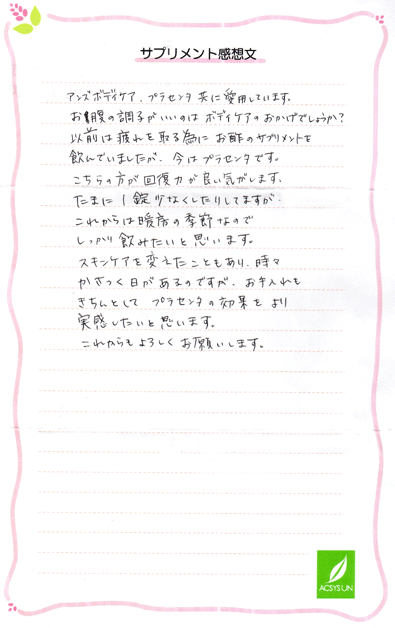 サプリメント感想文
アンズボディケア、プラセンタ共に愛用しています。
お腹の調子がいいのはボディケアのおかげでしょうか?
以前は疲れを取る為にお酢のサプリメントを
飲んでいましたが、今はプラセンタです。
こちらの方が回復力が良い気がします。
たまに1錠少なくしたりしてますが、
これからは暖房の季節なので
しっかり飲みたいと思います。
スキンケアを変えたこともあり、時々
かさつく日があるのですが、お手入れも
きちんとして プラセンタの効果をより
実感したいと思います。
これからもよろしくお願いします。
ACSYSUN